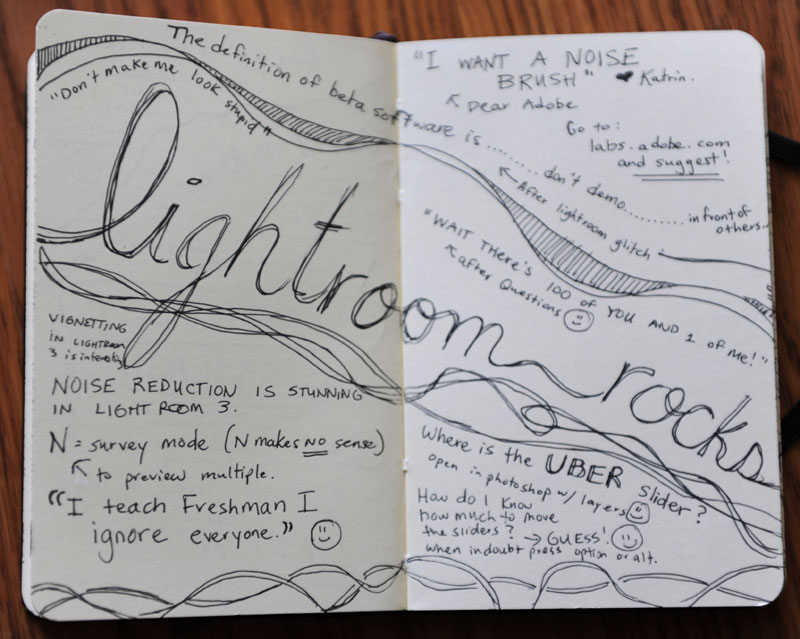 The definition of beta software is ....... don't demo........ in front of
others..
"Don't make me look stupid"
lightroom rocks
VIGNETTING
IN LIGHTROOM
3 is interesting
NOISE REDUCTION IS STUNNING
IN LIGHTROOM 3.
N = survey mode (N makes NO sense)
to preview multiple.
"I teach Freshman I
ignore everyone."
"I WANT A NOISE
BRUSH" ♥ Katrin.
Dear Adobe
Go to:
labs.adobe.com
and suggest!
After lightroom glitch
"WAIT THERE'S 100 OF YOU AND 1 OF ME!"
after Questions
Where is the UBER slider?
open in photoshop w/ layers
How do I know
how much to move
the sliders? → GUESS!
when in doubt press option or alt.